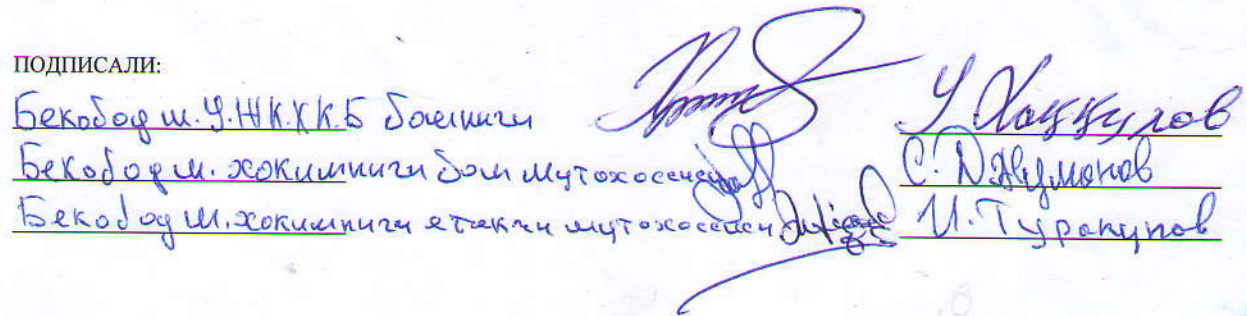 ПОДПИСАЛИ:
Бекобод ш. У.ЖК.ХК.Б бошлиғи У Хаққулов
Бекобод ш. хокимлиги бош мутохосиси С. Джумонов
Бекобод ш. хокимлиги етакчи мутохососи И. Туракулов